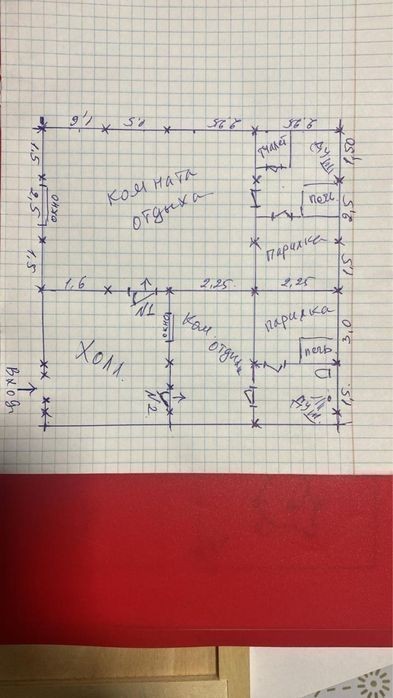 1,6
1,5
2,25
2,25
туалет
душ
1,50
1,5
комната
отдыха
2,5
окно
печь
2,5
парилка
1,5
1,5
1,6
2,25
2,25
N1
окно
ком.
отдыха
парилка
3,0
Холл.
печь
вход.
N2
душ
1,5